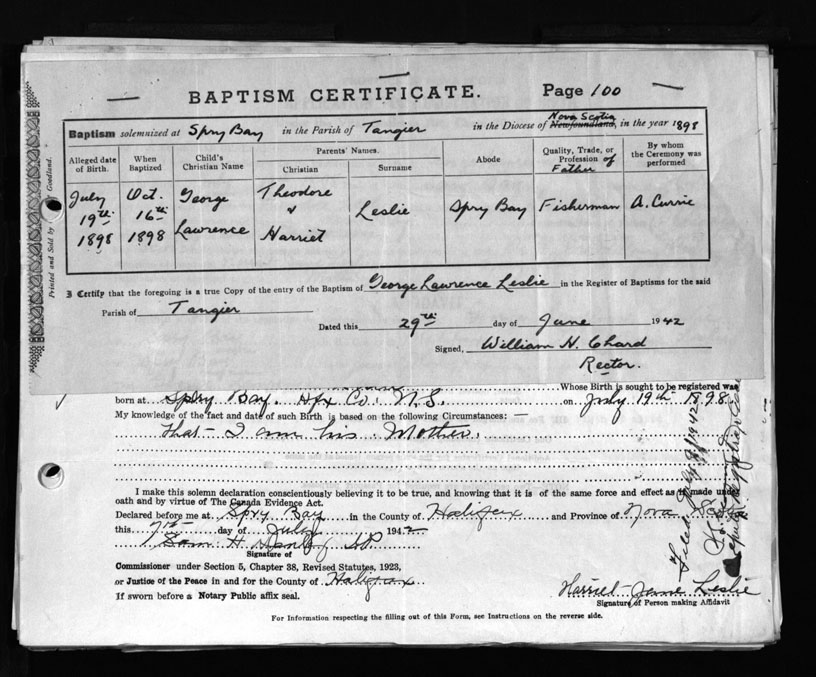 BAPTISM CERTIFICATE. Page 100
Baptism solemnized at Spry Bay in the Parish of Tangier in the Diocese of Newfoundland, Nova Scotia in the year 1898
Alleged date of Birth. When Baptized Child's Christian Name Parents' Names. Christian Surname Abode Quality, Trade, or Profession of Father By whom the Ceremony was performed
July 19th 1898 Oct. 16th 1898 George Lawrence Theodore & Harriet Leslie Spry Bay Fisherman A. Currie
I Certify that the foregoing is a true Copy of the entry of the Baptism of George Lawrence Leslie in the Register of Baptisms for the said
Parish of Tangier
Dated this 29th day of June 1942
Signed, William N. Chard
Rector.
Printed and Sold by Goodland.
Whose Birth is sought to be registered was
born at Spry Bay. Hfx Co. N.S. on July 19th 1898.
My knowledge of the fact and date of such Birth is based on the following Circumstances: —
that I am his Mother.
I make this solemn declaration conscientiously believing it to be true, and knowing that it is of the same force and effect as if made under
oath and by virtue of The Canada Evidence Act.
Declared before me at Spry Bay in the County of Halifax and Province of Nova Scotia
this 7th day of July 1942
Signature of
Commissioner under Section 5, Chapter 38, Revised Statutes, 1923,
or Justice of the Peace in and for the County of Halifax
If sworn before a Notary Public affix seal.
Harriet Jane Leslie
Signature of Person making Affidavit
For Information respecting the filling out of this Form, see Instructions on the reverse side.
Filed July 8/1942